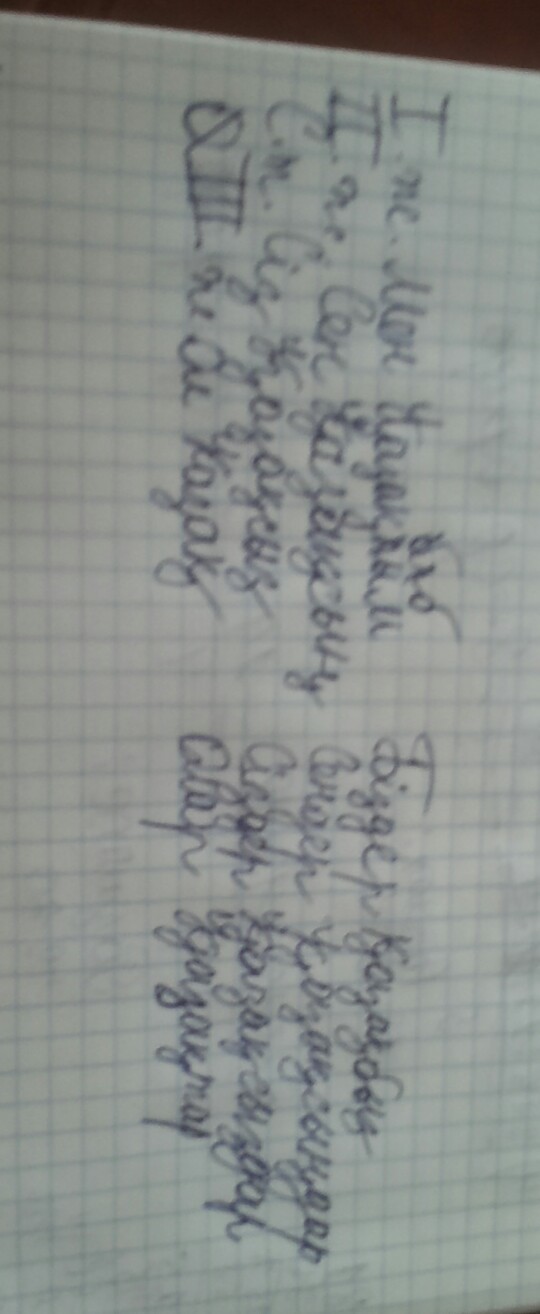 I. ж. Мен Қазақпын Біздер Қазақбыз
II. ж. Сен Қазақсың Сендер Қазақсыңдар
С.т. Сіз Қазақсыз Сіздер Қазақсыздар
III. ж Ол Қазақ Олар Қазақтар